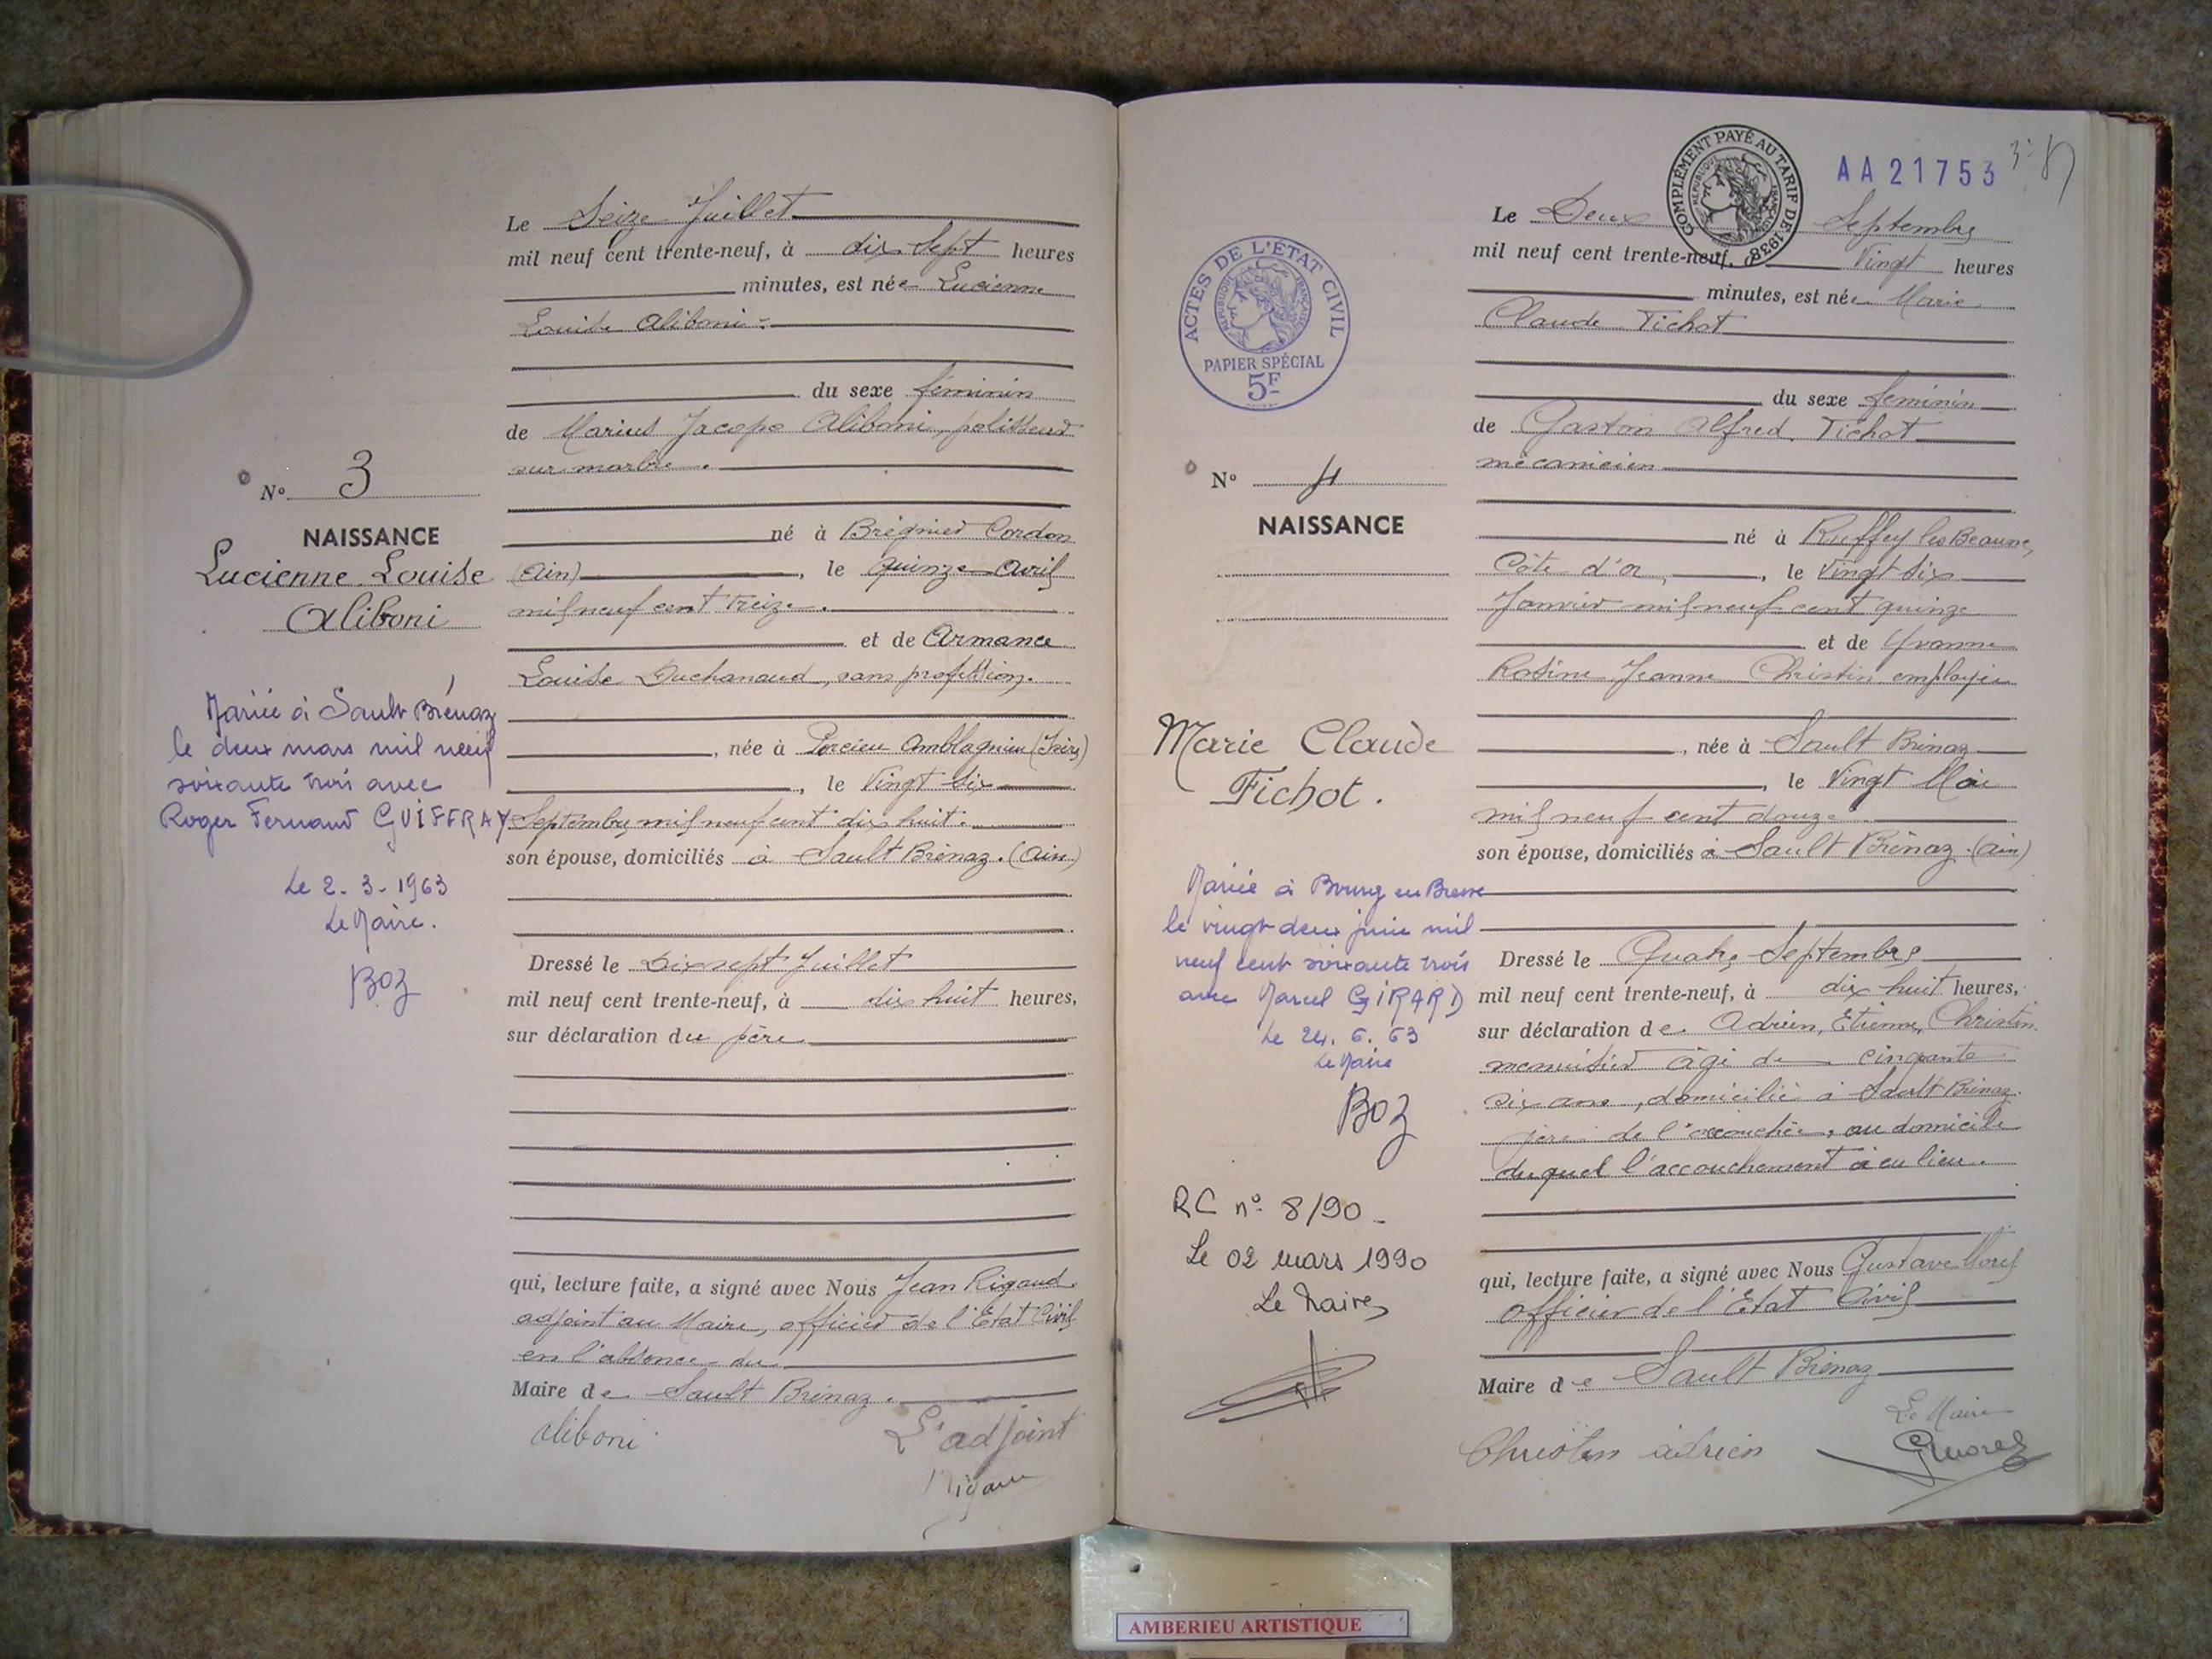 Le Seize Juillet
mil neuf cent trente-neuf, à dix Sept heures
minutes, est née Lucienne
Louise Aliboni.
du sexe féminin
de Marius Jacopo Aliboni, polisseur
sur marbre.
né à Brégnier Cordon
(Ain), le quinze Avril
mil neuf cent treize.
et de Armance
Louise Duchanaud, sans profession.
, née à Porcieu Amblagnieu (Isère)
, le Vingt Six
Septembre mil neuf cent dix huit.
son épouse, domiciliés à Sault Brénaz. (Ain)
Dressé le Dix sept Juillet
mil neuf cent trente-neuf, à dix huit heures,
sur déclaration du père
qui, lecture faite, a signé avec Nous Jean Rigaud
adjoint au Maire, officier de l'Etat Civil
en l'absence du
Maire de Sault Brénaz.
Aliboni
L'adjoint
Rigaud
N° 3
NAISSANCE
Lucienne Louise
Aliboni
Mariée à Sault Brénaz
le deux mars mil neuf
soixante trois avec
Roger Fernand GUIFFRAY
Le 2-3-1963
Le Maire.
BOZ
AA21753
COMPLÉMENT PAYÉ AU TARIF DE 1938
RÉPUBLIQUE FRANÇAISE
ACTES DE L'ÉTAT CIVIL
RÉPUBLIQUE FRANÇAISE
PAPIER SPÉCIAL
5F
Le Deux Septembre
mil neuf cent trente-neuf, à Vingt heures
minutes, est née Marie
Claude Fichot
du sexe féminin
de Gaston Alfred Fichot
mécanicien
né à Ruffey les Beaune,
Côte d'or, le Vingt Six
Janvier mil neuf cent quinze
et de Yvonne
Rosine Jeanne Christin employée
, née à Sault Brénaz
, le Vingt Mai
mil neuf cent douze
son épouse, domiciliés à Sault Brénaz (Ain)
Dressé le Quatre Septembre
mil neuf cent trente-neuf, à dix huit heures,
sur déclaration de Adrien, Etienne, Christin
menuisier âgé de cinquante
six ans, domicilié à Sault Brénaz
père de l'accouchée, au domicile
duquel l'accouchement a eu lieu.
qui, lecture faite, a signé avec Nous Gustave Morel
Officier de l'Etat Civil
Maire de Sault Brénaz
Christin adrien
Le Maire
GMorel
N° 4
NAISSANCE
Marie Claude
Fichot.
Mariée à Bourg en Bresse
le vingt-deux juin mil
neuf cent soixante trois
avec Marcel GIRARD
Le 24.6.63
Le Maire
BOZ
RC n° 8/90-
Le 02 mars 1990
Le Maire,
AMBERIEU ARTISTIQUE